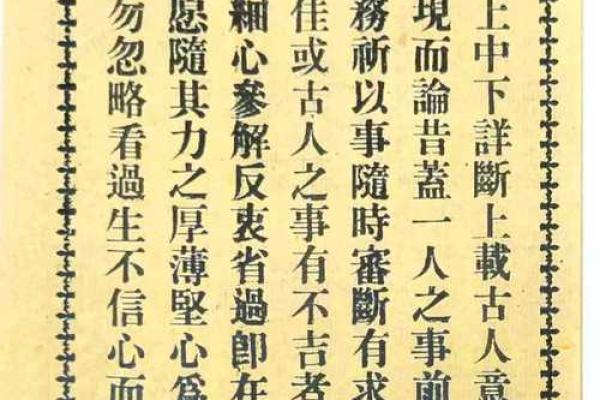 上中下詳斷上載古人意
現而論昔蓋一人之事前
務祈以事隨時審斷有求
佳或古人之事有不吉者
細心參解反衷省過卽在
愿隨其力之厚薄堅心爲
勿忽略看過生不信心而